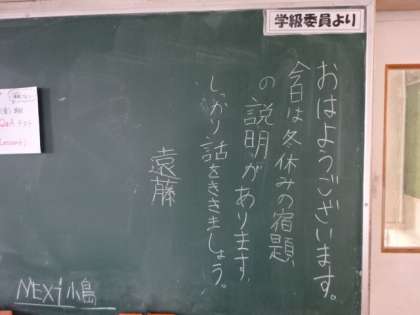 学級委員より
おはようございます。
今日は冬休みの宿題
の説明があります。
しっかり話をききましょう。
遠藤
NEXT 小島